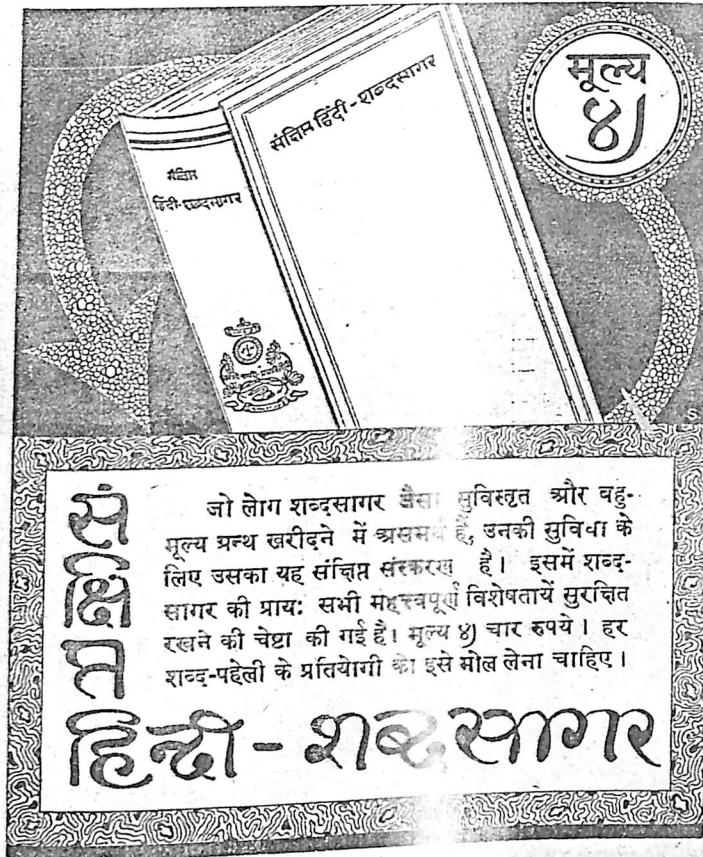 मूल्य
४)
संक्षिप्त हिंदी-शब्दसागर
संक्षिप्त
हिंदी-शब्दसागर
सं
क्षि
प्त
जो लोग शब्दसागर जैसा सुविस्तृत और बहु-
मूल्य ग्रन्थ खरीदने में असमर्थ हैं, उनकी सुविधा के
लिए उसका यह संक्षिप्त संस्करण है। इसमें शब्द-
सागर की प्रायः सभी महत्त्वपूर्ण विशेषतायें सुरक्षित
रखने की चेष्टा की गई है। मूल्य ४) चार रुपये। हर
शब्द-पहेली के प्रतियोगी को इसे मोल लेना चाहिए।
हिन्दी-शब्दसागर